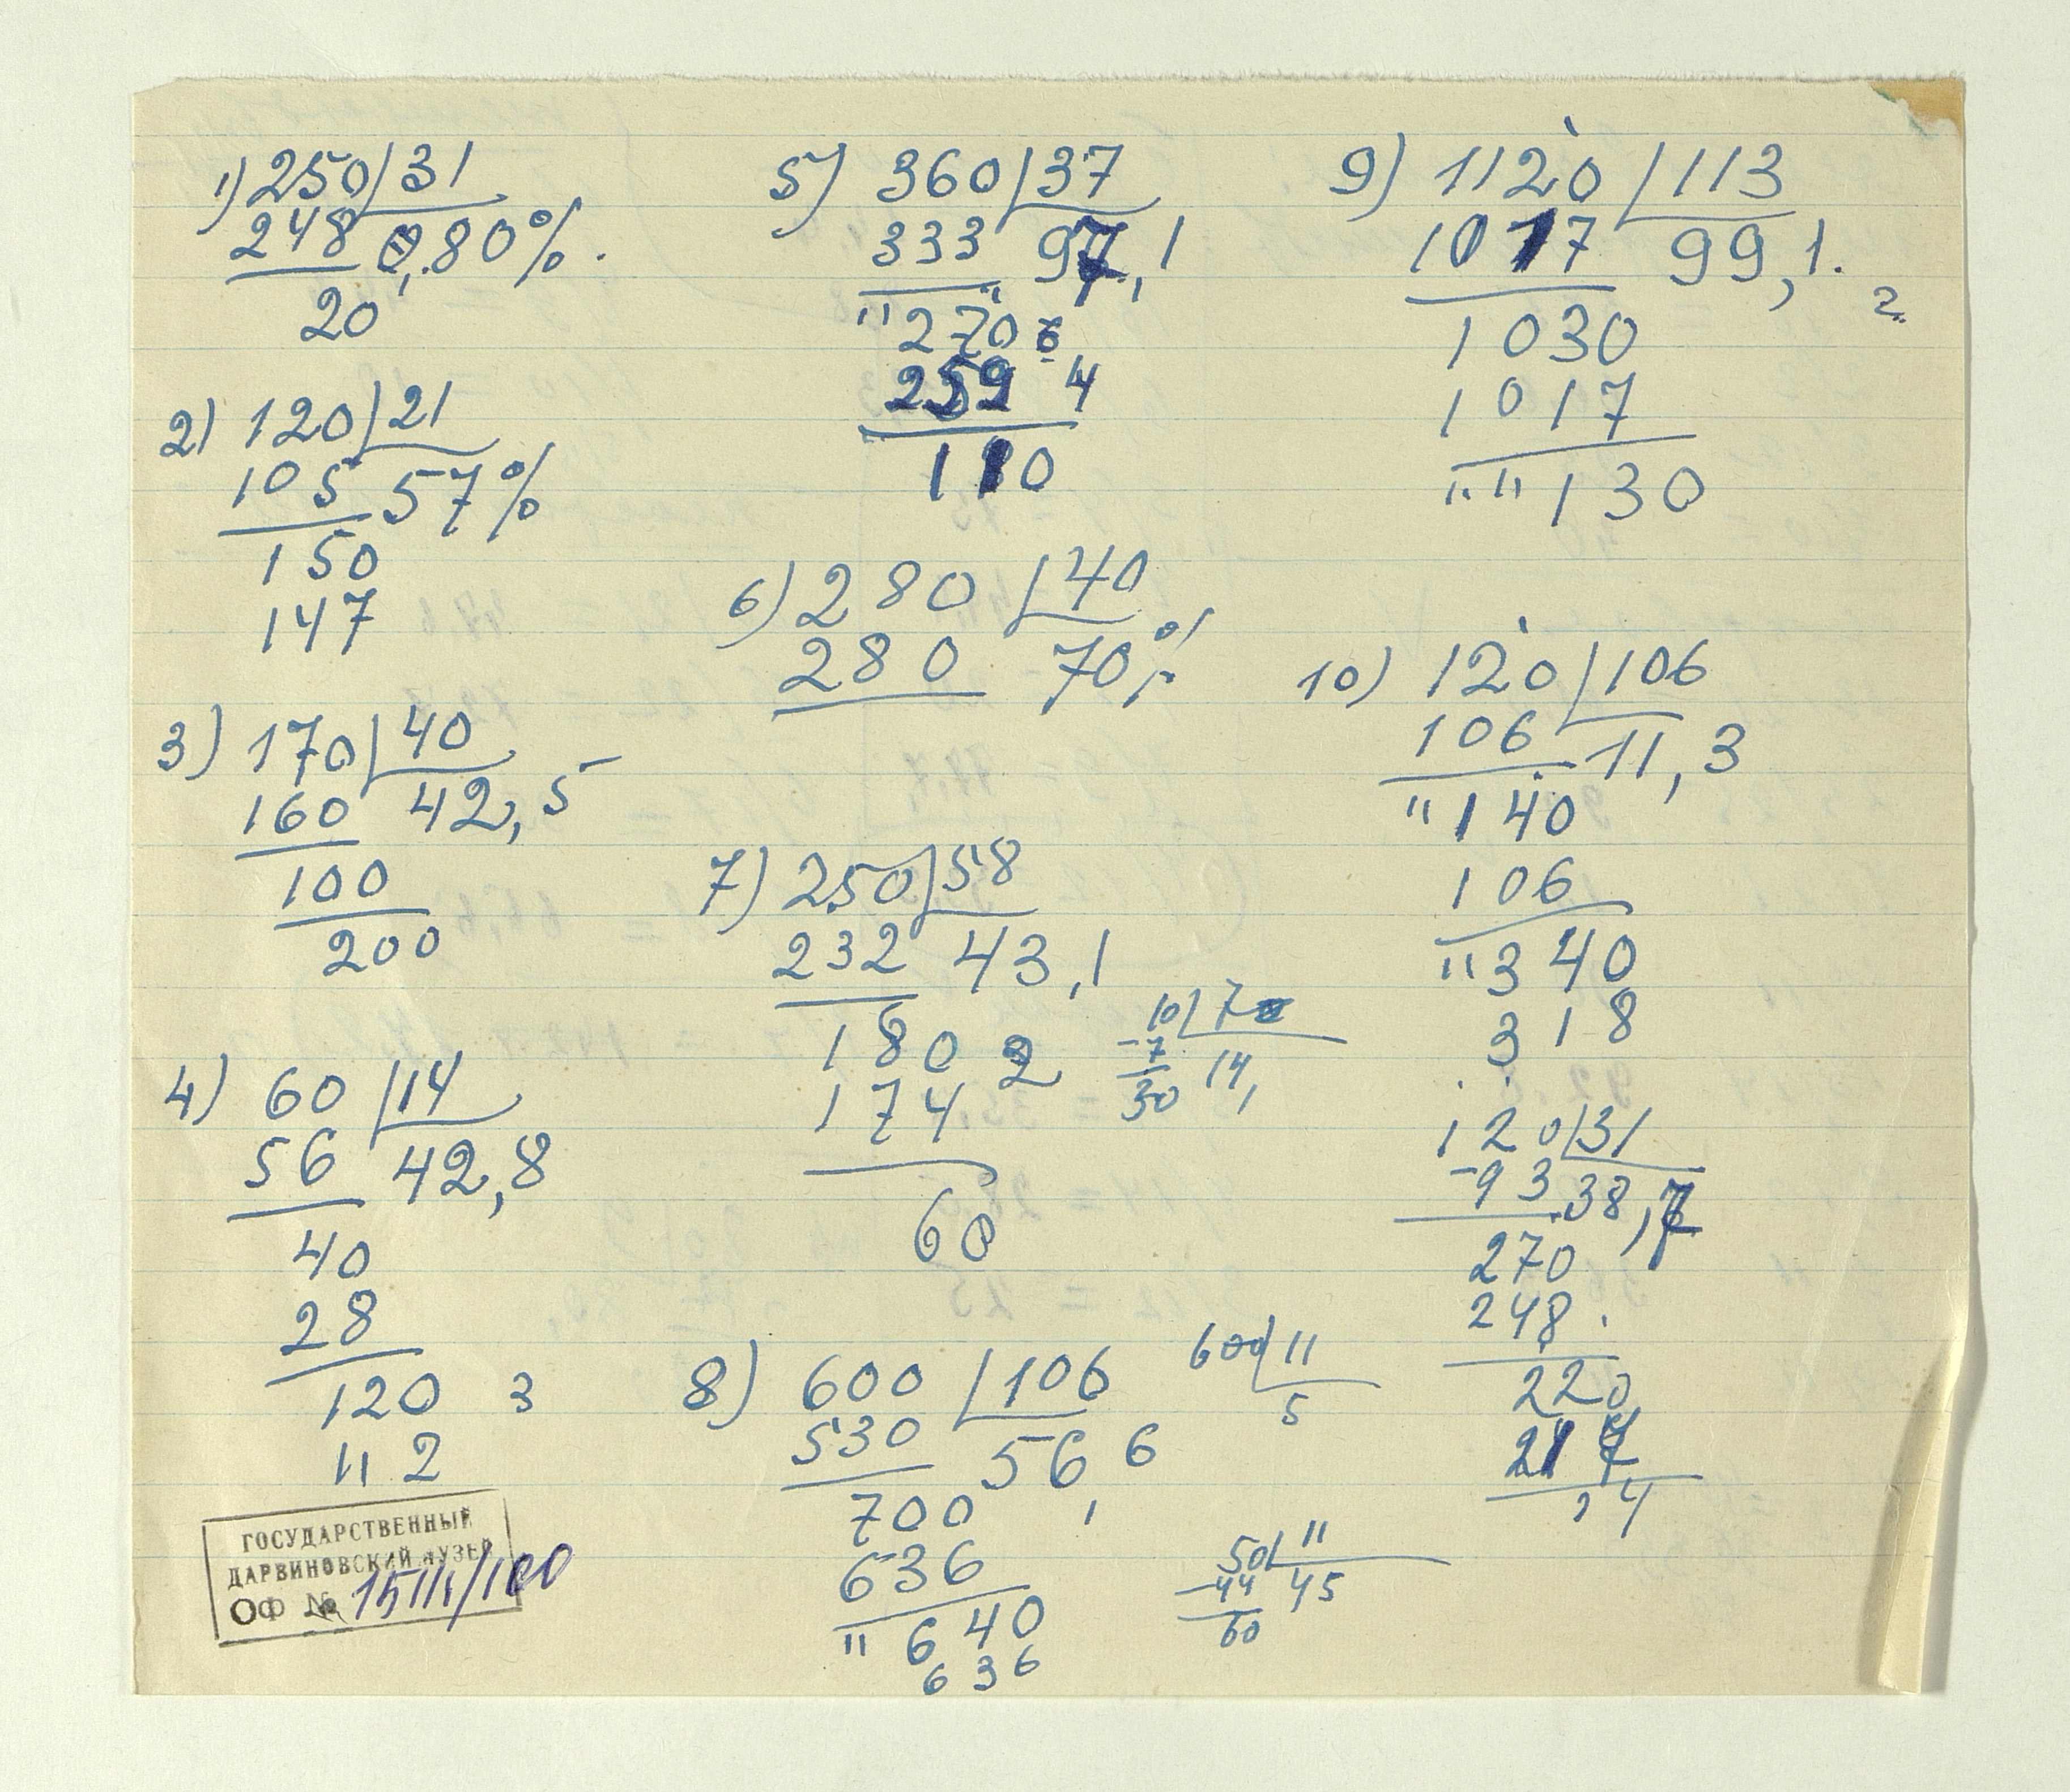 1) 250 31
248 0,80%.
20
2) 120 21
105 57%
150
147
3) 170 40
160 42,5
100
200
4) 60 14
56 42,8
40
28
120 3
112
5) 360 37
333 97,1
270 6
259 4
110
6) 280 40
280 70%
7) 250 58
232 43,1
180 2
174
60
10 7
-7 14,
30
8) 600 106
530 56,6
700
636
640
636
600 11
5
50 11
-44 45
60
9) 1120 113
1017 99,1.
2
1030
1017
130
10) 120 106
106 11,3
140
106
340
318
120 31
-93 38,7
270
248
220
217
14
ГОСУДАРСТВЕННЫЙ
ДАРВИНОВСКИЙ МУЗЕЙ
ОФ №